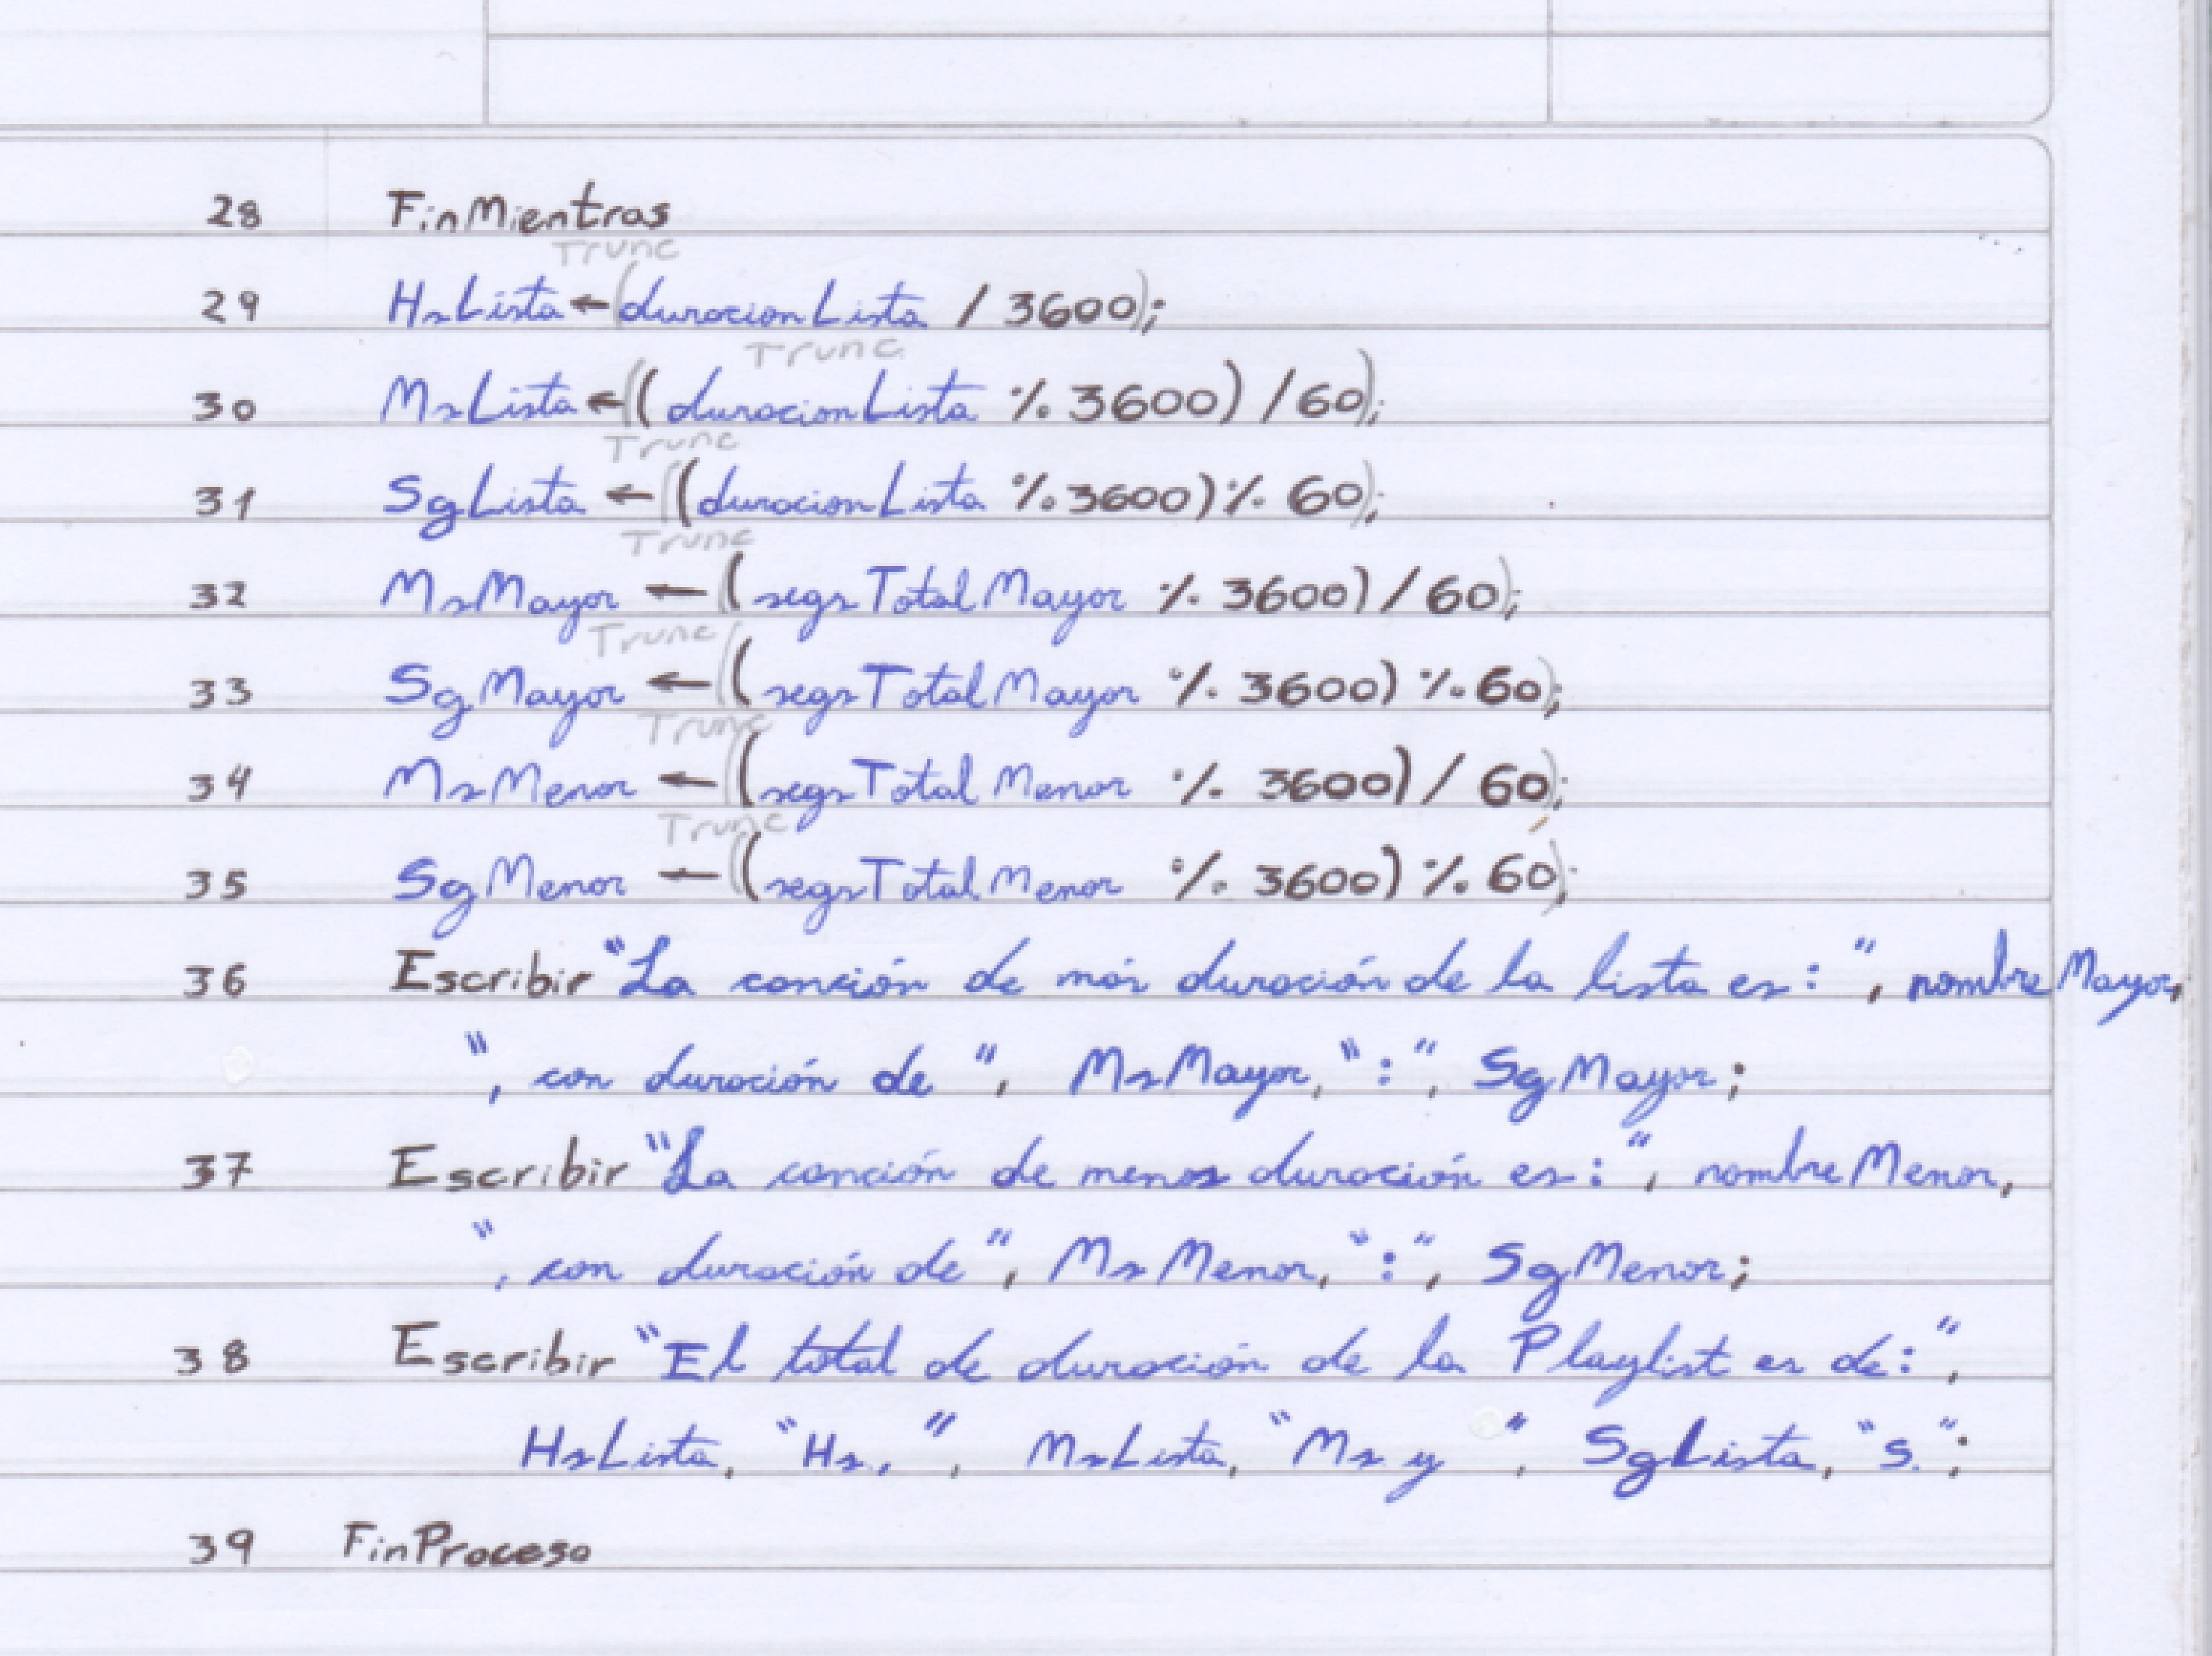 28 FinMientras
Trunc
29 HsLista ← (duracionLista / 3600);
Trunc
30 MsLista ← ((duracionLista % 3600) / 60);
Trunc
31 SgLista ← ((duracionLista % 3600) % 60);
Trunc
32 MsMayor ← ((segsTotalMayor % 3600) / 60);
Trunc
33 SgMayor ← ((segsTotalMayor % 3600) % 60);
Trunc
34 MsMenor ← ((segsTotalMenor % 3600) / 60);
Trunc
35 SgMenor ← ((segsTotalMenor % 3600) % 60);
36 Escribir "La canción de más duración de la lista es: ", nombreMayor,
", con duración de ", MsMayor, ":", SgMayor;
37 Escribir "La canción de menos duración es: ", nombreMenor,
", con duración de ", MsMenor, ":", SgMenor;
38 Escribir "El total de duración de la Playlist es de: ",
HsLista, "Hs, ", MsLista, "Ms y ", SgLista, "s.";
39 FinProceso